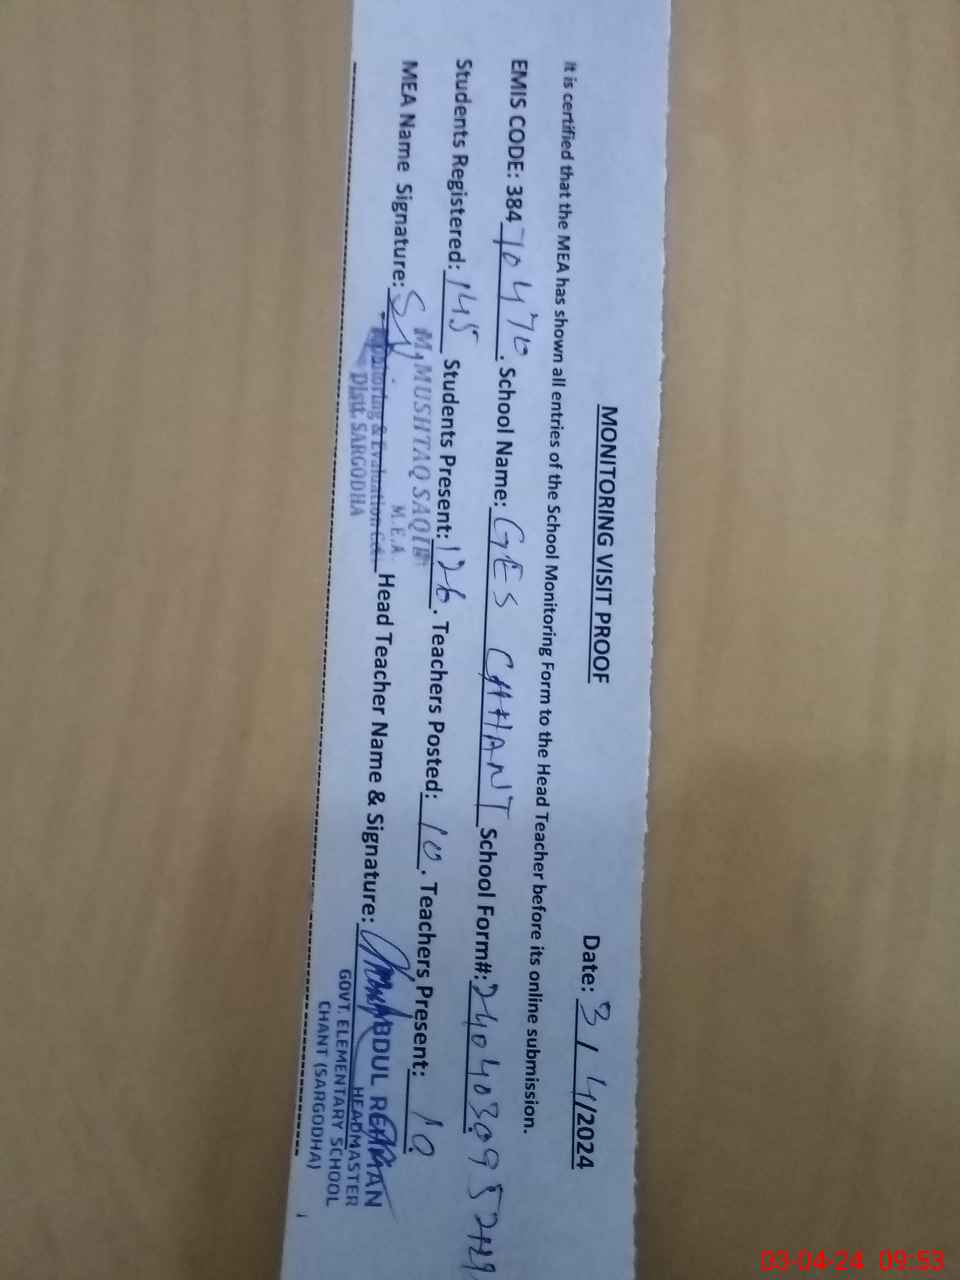 MONITORING VISIT PROOF
Date: 3/4/2024
It is certified that the MEA has shown all entries of the School Monitoring Form to the Head Teacher before its online submission.
EMIS CODE: 38470470. School Name: GES CHHANT School Form#: 240403095
Students Registered: 145 Students Present: 126. Teachers Posted: 10. Teachers Present: 10
MEA Name Signature: Head Teacher Name & Signature:
M. MUSHTAQ SAQIB
M.E.A.
Monitoring & Evaluation
Distt. SARGODHA
ABDUL REHMAN
HEADMASTER
GOVT. ELEMENTARY SCHOOL
CHANT (SARGODHA)
03-04-24 09:53